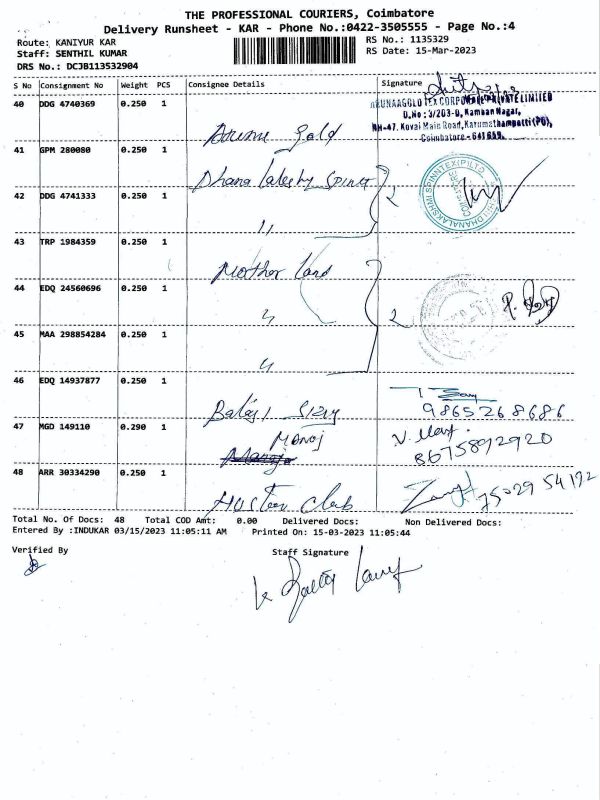 THE PROFESSIONAL COURIERS, Coimbatore
Delivery Runsheet - KAR - Phone No.:0422-3505555 - Page No.:4
Route: KANIYUR KAR
RS No.: 1135329
Staff: SENTHIL KUMAR
RS Date: 15-Mar-2023
DRS No.: DCJB113532904
S No Consignment No Weight PCS Consignee Details Signature
40 DDG 4740369 0.250 1
ARUNAAGOLOTEX CORPORATE PRIVATE LIMITED
D.No: 3/203-D, Kamaan Nagar,
NH-47, Kovai Main Road, Karumathampatti(PO),
Coimbatore - 641659.
Gold
41 GPM 280080 0.250 1
Dhana Lakshmy Spinn 2
SHRI DHANALAKSHMI SPINNTEX(P)LTD
42 DDG 4741333 0.250 1
,,
43 TRP 1984359 0.250 1
Mother Land
44 EDQ 24560696 0.250 1
,, 2
45 MAA 298854284 0.250 1
,,
46 EDQ 14937877 0.250 1
Balaji
9865268686
47 MGD 149110 0.290 1
Manoj
8675892920
48 ARR 30334290 0.250 1
Club
75029 54172
Total No. Of Docs: 48 Total COD Amt: 0.00 Delivered Docs: Non Delivered Docs:
Entered By :INDUKAR 03/15/2023 11:05:11 AM Printed On: 15-03-2023 11:05:44
Verified By
Staff Signature